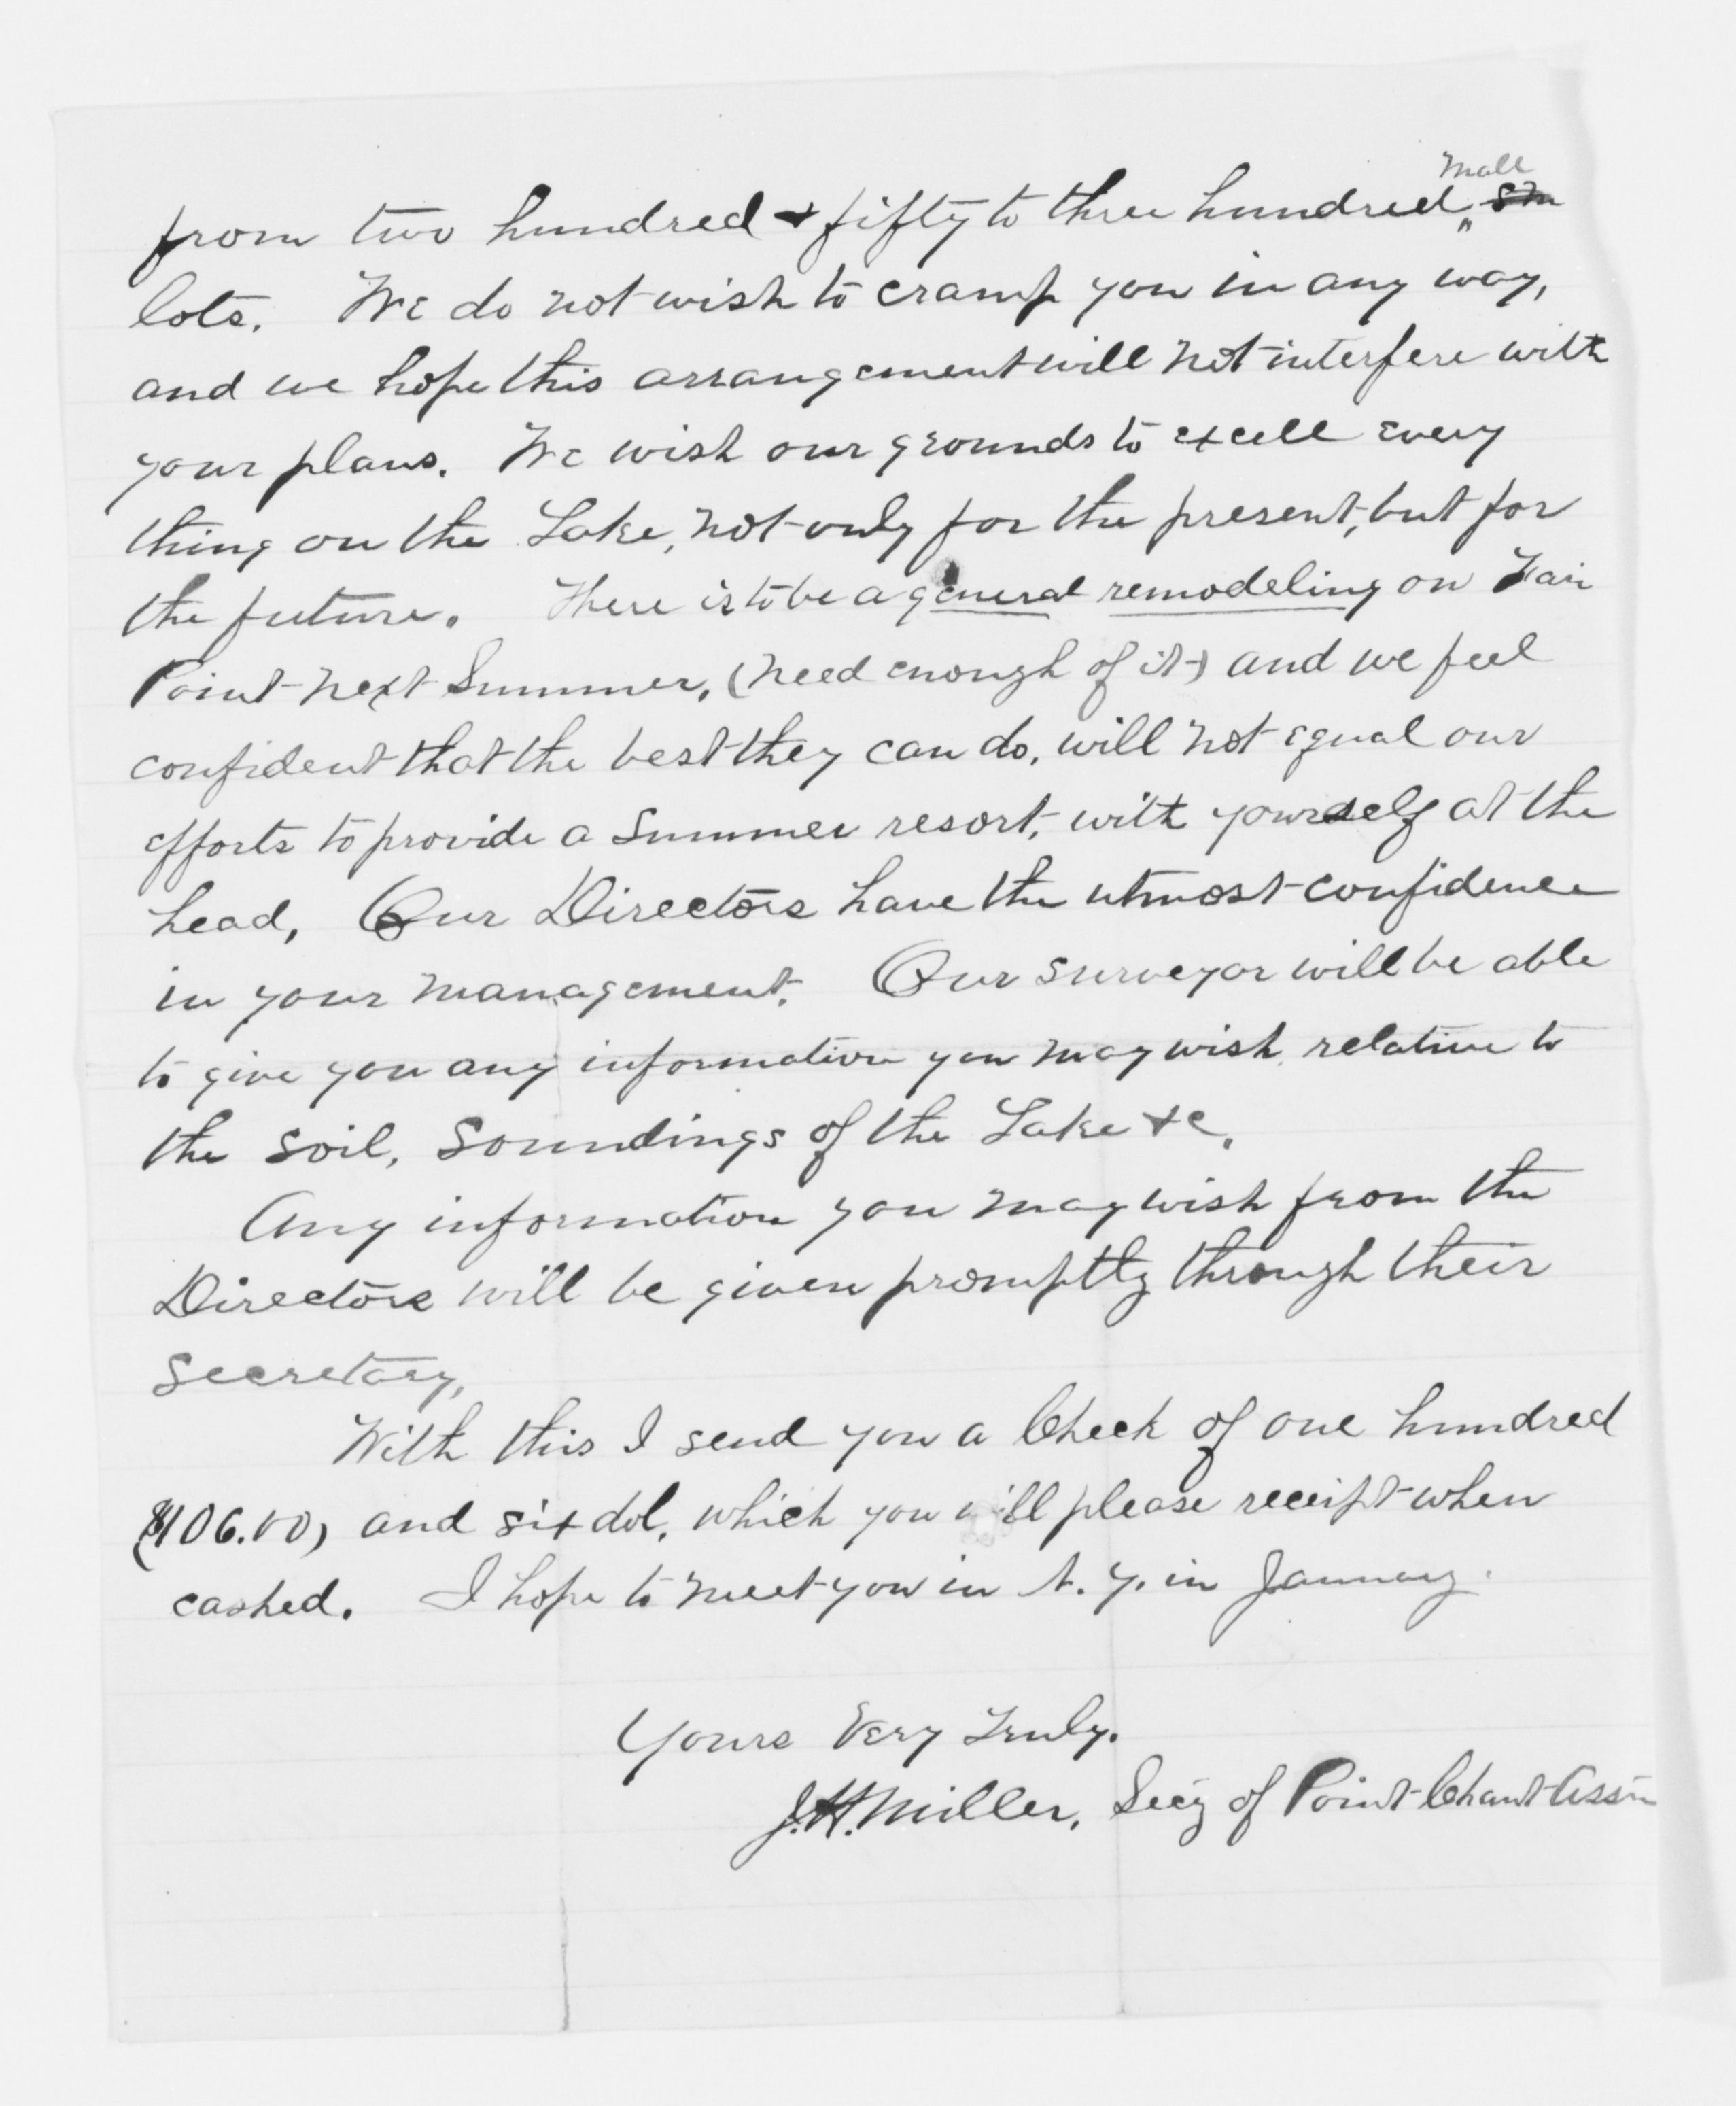 from two hundred & fifty to three hundred, sm
mall
lots. We do not wish to cramp you in any way,
and we hope this arrangement will not interfere with
your plans. We wish our grounds to excell every
thing on the Lake, not only for the present, but for
the future. There is to be a general remodeling on Fair
Point next Summer, (need enough of it) and we feel
confident that the best they can do, will not equal our
efforts to provide a Summer resort, with yourself at the
head, Our Directors have the utmost confidence
in your management. Our surveyor will be able
to give you any information you may wish relative to
the soil, soundings of the Lake &c.
Any information you may wish from the
Directors will be given promptly through their
Secretary,
With this I send you a Check of one hundred
($106.00) and six dol, which you will please receipt when
cashed. I hope to meet you in N. Y. in January.
Yours Very Truly.
J. H. Miller, Sec'y of Point Chaut Ass'n